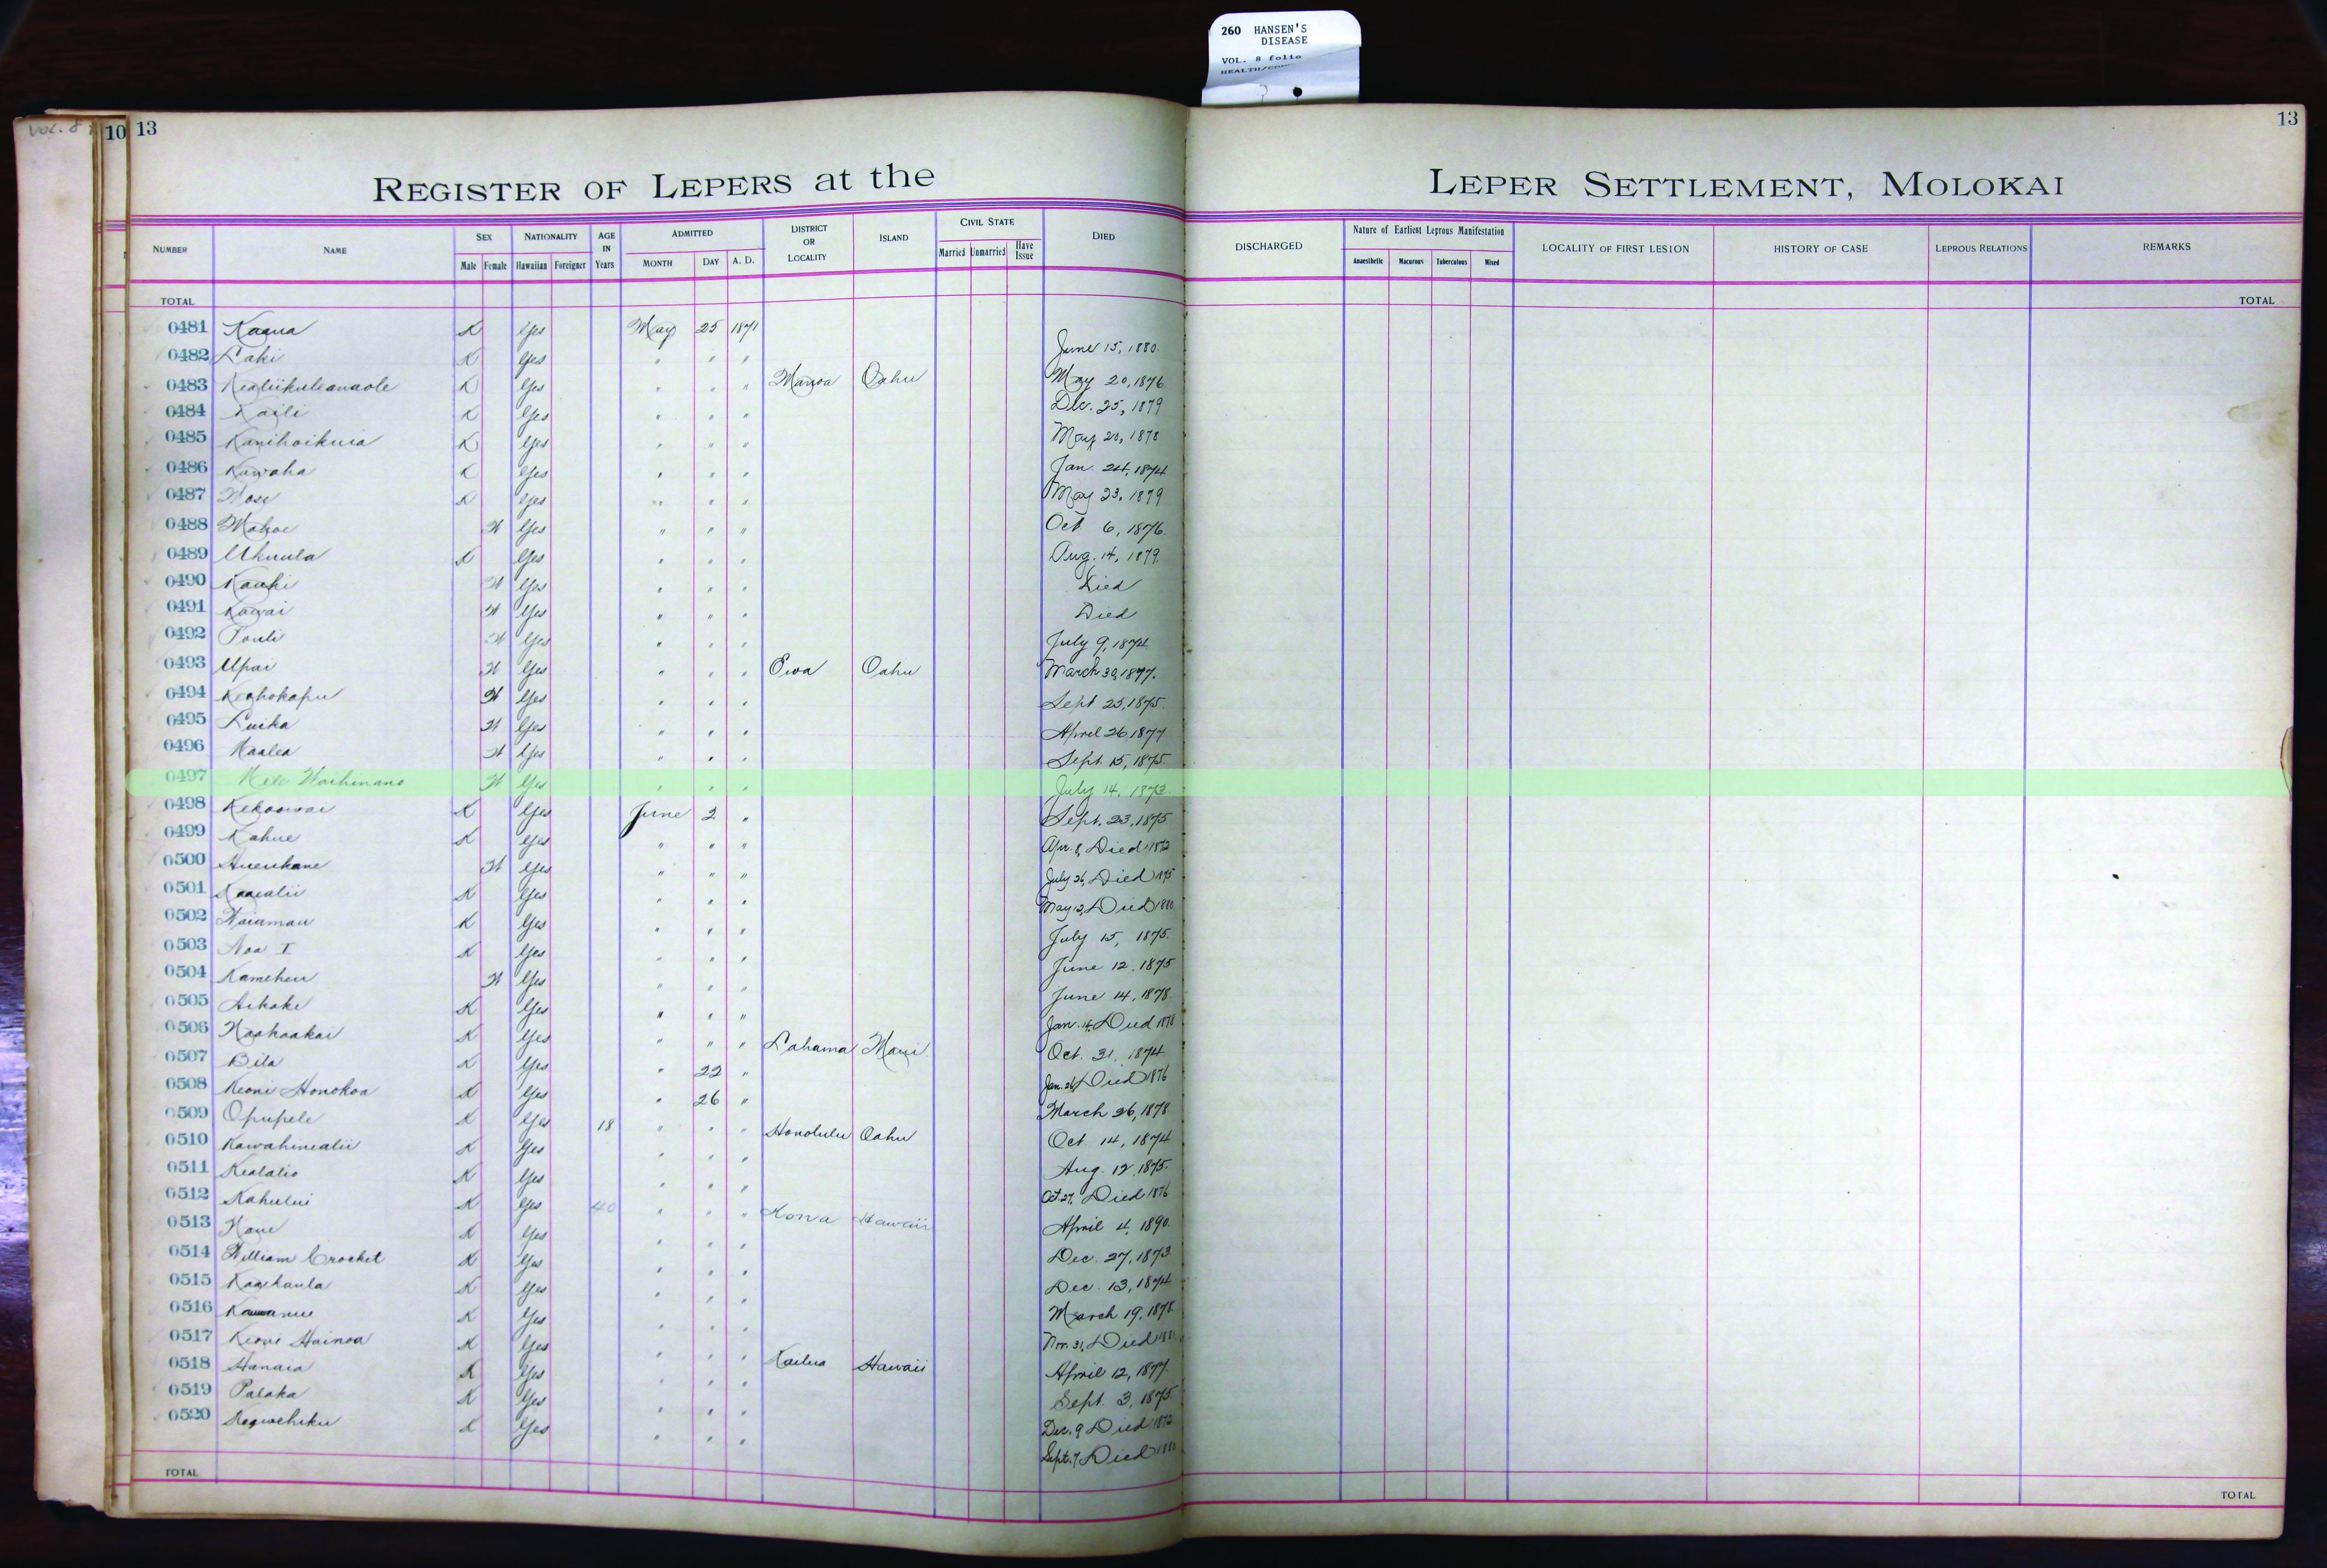 260 HANSEN'S
DISEASE
VOL. 8 folio
VOL. 8
10 13
13
REGISTER OF LEPERS at the LEPER SETTLEMENT, MOLOKAI
NUMBER NAME SEX Male Female NATIONALITY Hawaiian Foreigner AGE IN Years ADMITTED MONTH DAY A. D. DISTRICT OR LOCALITY ISLAND CIVIL STATE Married Unmarried Have Issue DIED DISCHARGED Nature of Earliest Leprous Manifestation Anaesthetic Macurous Tuberculous Mixed LOCALITY OF FIRST LESION HISTORY OF CASE LEPROUS RELATIONS REMARKS
TOTAL TOTAL
0481 Kaaua K Yes May 25 1871 June 15, 1880.
0482 Laki K Yes " " " May 20, 1876
0483 Kealiikuleanaole K Yes " " " Manoa Oahu Dec. 25, 1879
0484 Kaili K Yes " " " May 20, 1878
0485 Kanihoikuia K Yes " " " Jan. 24, 1874
0486 Kawaha K Yes " " " May 23, 1879
0487 K Yes " " " Oct 6, 1876.
0488 Mahoe W Yes " " " Aug. 14, 1879.
0489 Ukuula K Yes " " " Died
0490 Kauhi W Yes " " " Died
0491 Kawai W Yes " " " July 9, 1874
0492 Pouli W Yes " " " March 30, 1877.
0493 Upai W Yes " " " Ewa Oahu Sept 25, 1875.
0494 Keahokapu W Yes " " " April 26 1877
0495 Luika W Yes " " " Sept. 15, 1875.
0496 Kaalea W Yes " " " July 14, 1873.
0497 Mele Waihinano W Yes " " "
0498 Kekoowai K Yes June 2 " Sept. 23, 1875
0499 Kahue K Yes " " " Apr. 8, Died 1872
0500 Hueukane W Yes " " " July 26, Died 1875
0501 K Yes " " " May 12, Died 1880
0502 Waiamau K Yes " " " July 15, 1875.
0503 Noa I K Yes " " " June 12. 1875
0504 Kameheu W Yes " " " June 14, 1878
0505 Aikake K Yes " " " Jan. 14, Died 1878
0506 Naahaakai K Yes " " " Lahaina Maui Oct. 31, 1874
0507 Bila K Yes " 22 " Jan. 26, Died 1876
0508 Keoni Honokoa K Yes " 26 " March 26, 1878.
0509 Opupele K Yes 18 " " " Honolulu Oahu Oct 14, 1874
0510 Kawahinealii K Yes " " " Aug. 12, 1875.
0511 Kealalio K Yes " " " Oct. 27, Died 1876
0512 Kahului K Yes 40 " " " Kona Hawaii April 4, 1890.
0513 K Yes " " " Dec. 27, 1873
0514 William Crocket K Yes " " " Dec. 13, 1874
0515 Kaaikaula K Yes " " " March 19, 1878.
0516 K Yes " " " Nov. 31, Died
0517 Keoni Hainoa K Yes " " " Kailua Hawaii April 12, 1877.
0518 Hanaia K Yes " " " Sept. 3, 1875.
0519 Palaka K Yes " " " Dec. 9 Died 1872
0520 K Yes " " " Sept. 7, Died
TOTAL TOTAL